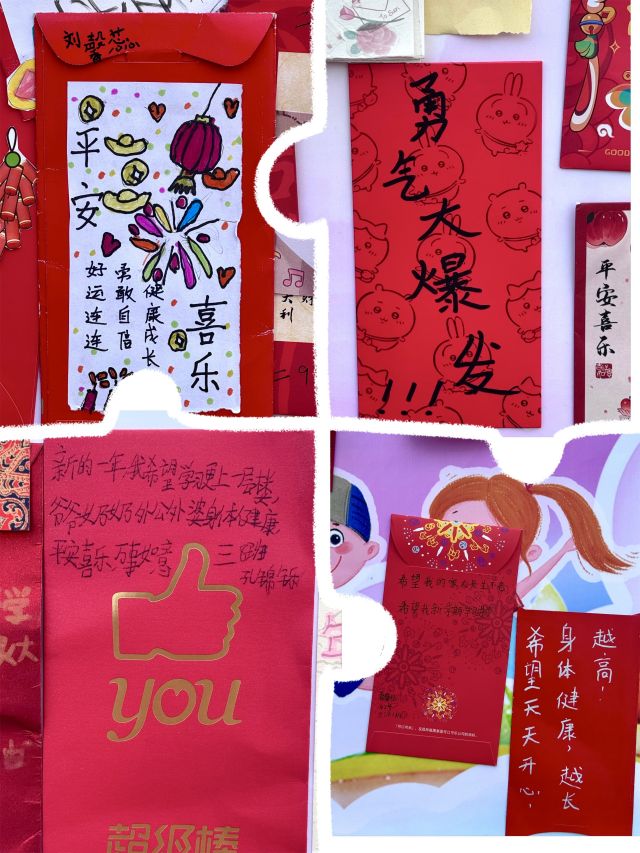 刘馨蕊
平安
喜乐
健康成长
勇敢自信
好运连连
勇气大爆发
!!!
GOOD
平安喜乐
新的一年,我希望学习更上一层楼,
爷爷奶奶外公外婆身体健康
平安喜乐,万事如意
三8班
孔锦铄
you
超级棒
希望我的家人长生不老,
越高!
身体健康,越长
希望天天开心,